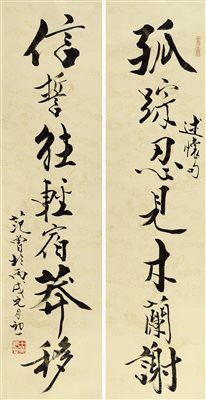 孤踪忍見木蘭謝
述懷句
信誓往輕宿莽移
范曾於丙戌元月初一